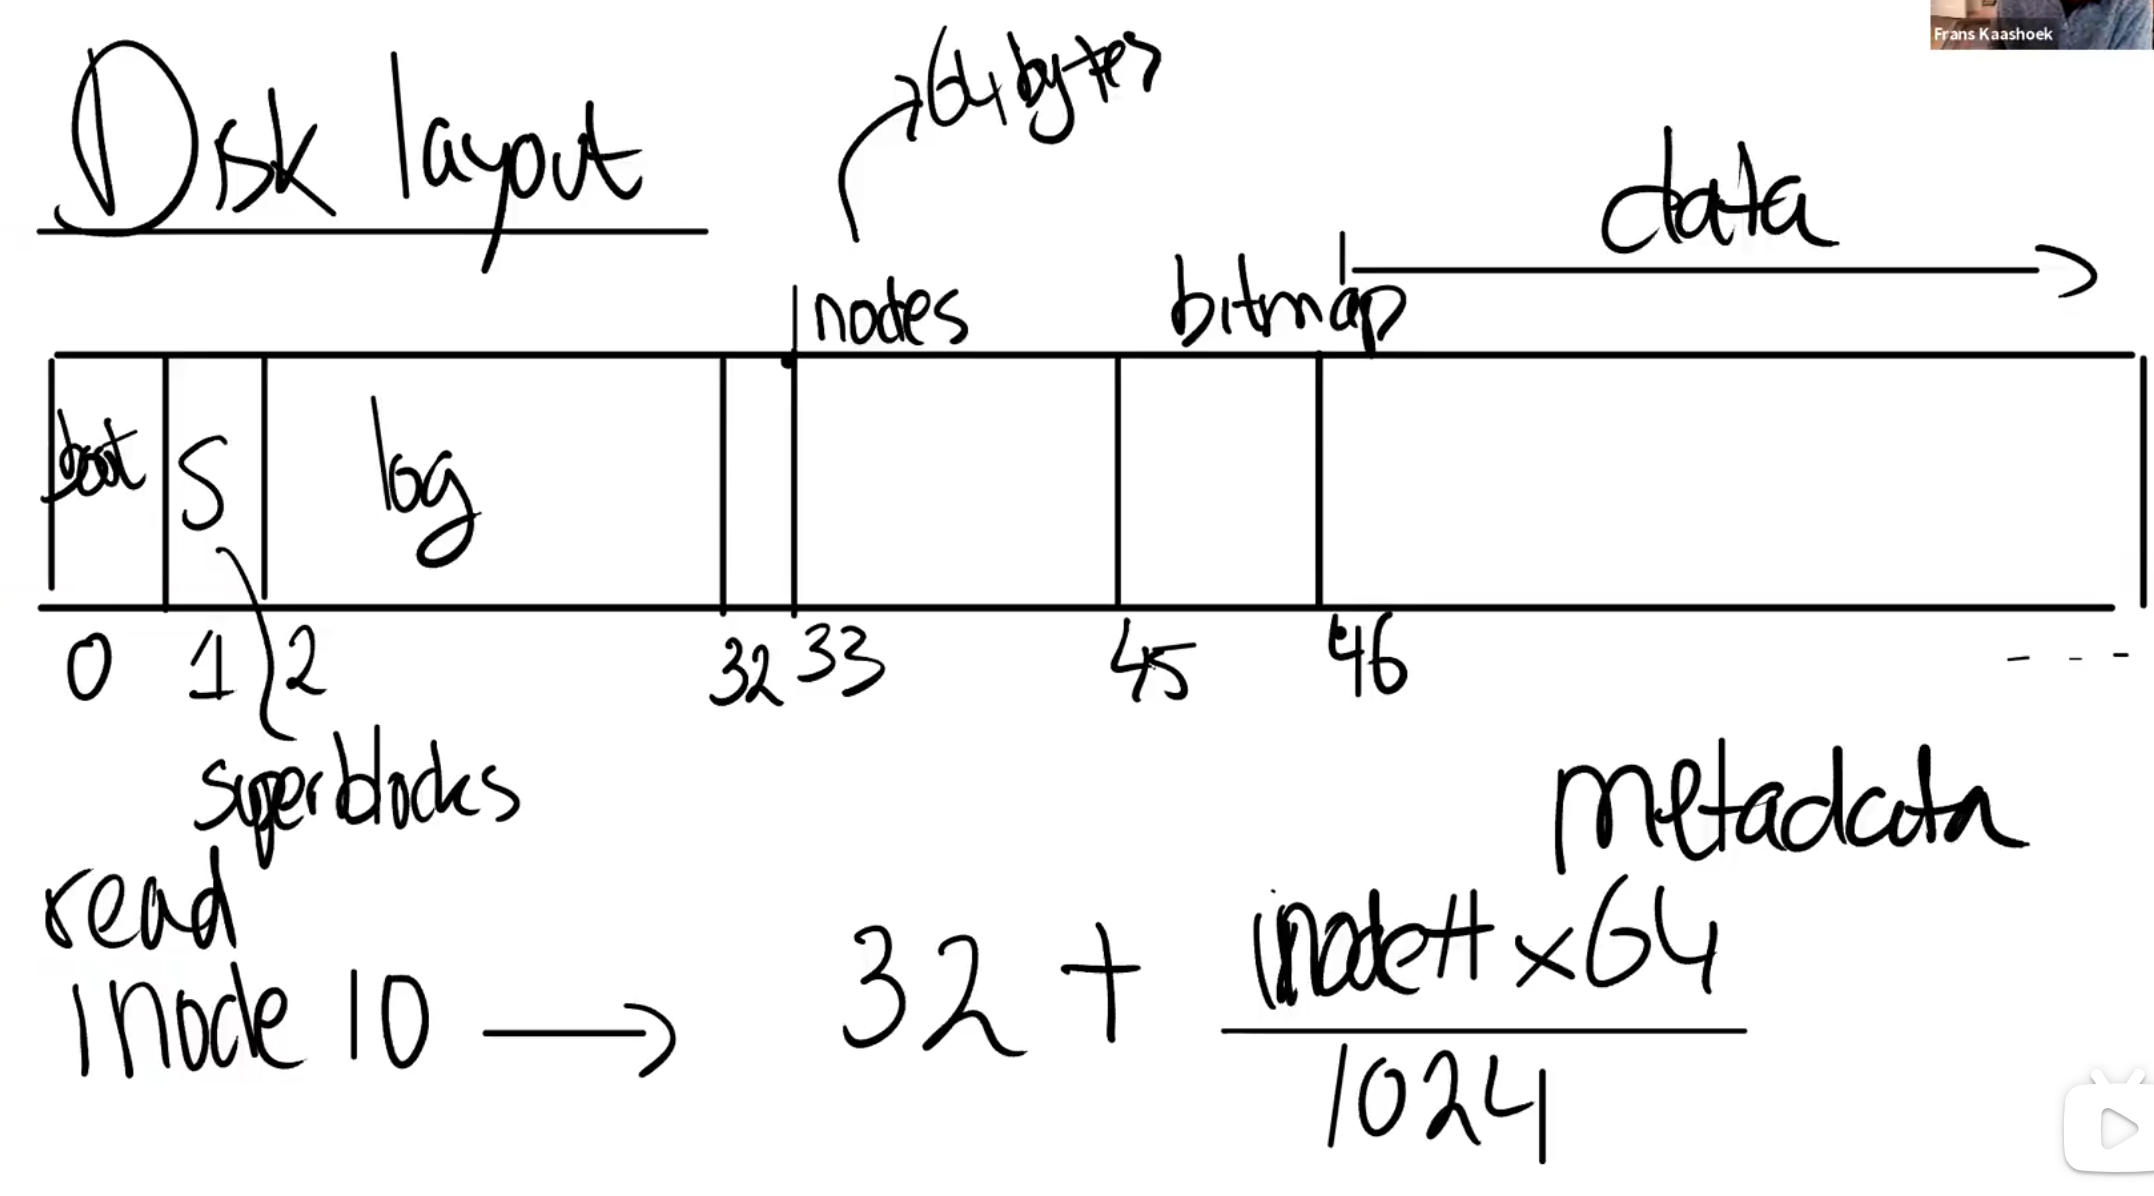 Frans Kaashoek
Disk layout
64 bytes
data
inodes
bitmap
boot
S
log
0 1 2 32 33 45 46 - - -
superblocks
metadata
read
inode 10 → 32 + inode# x 64
1024